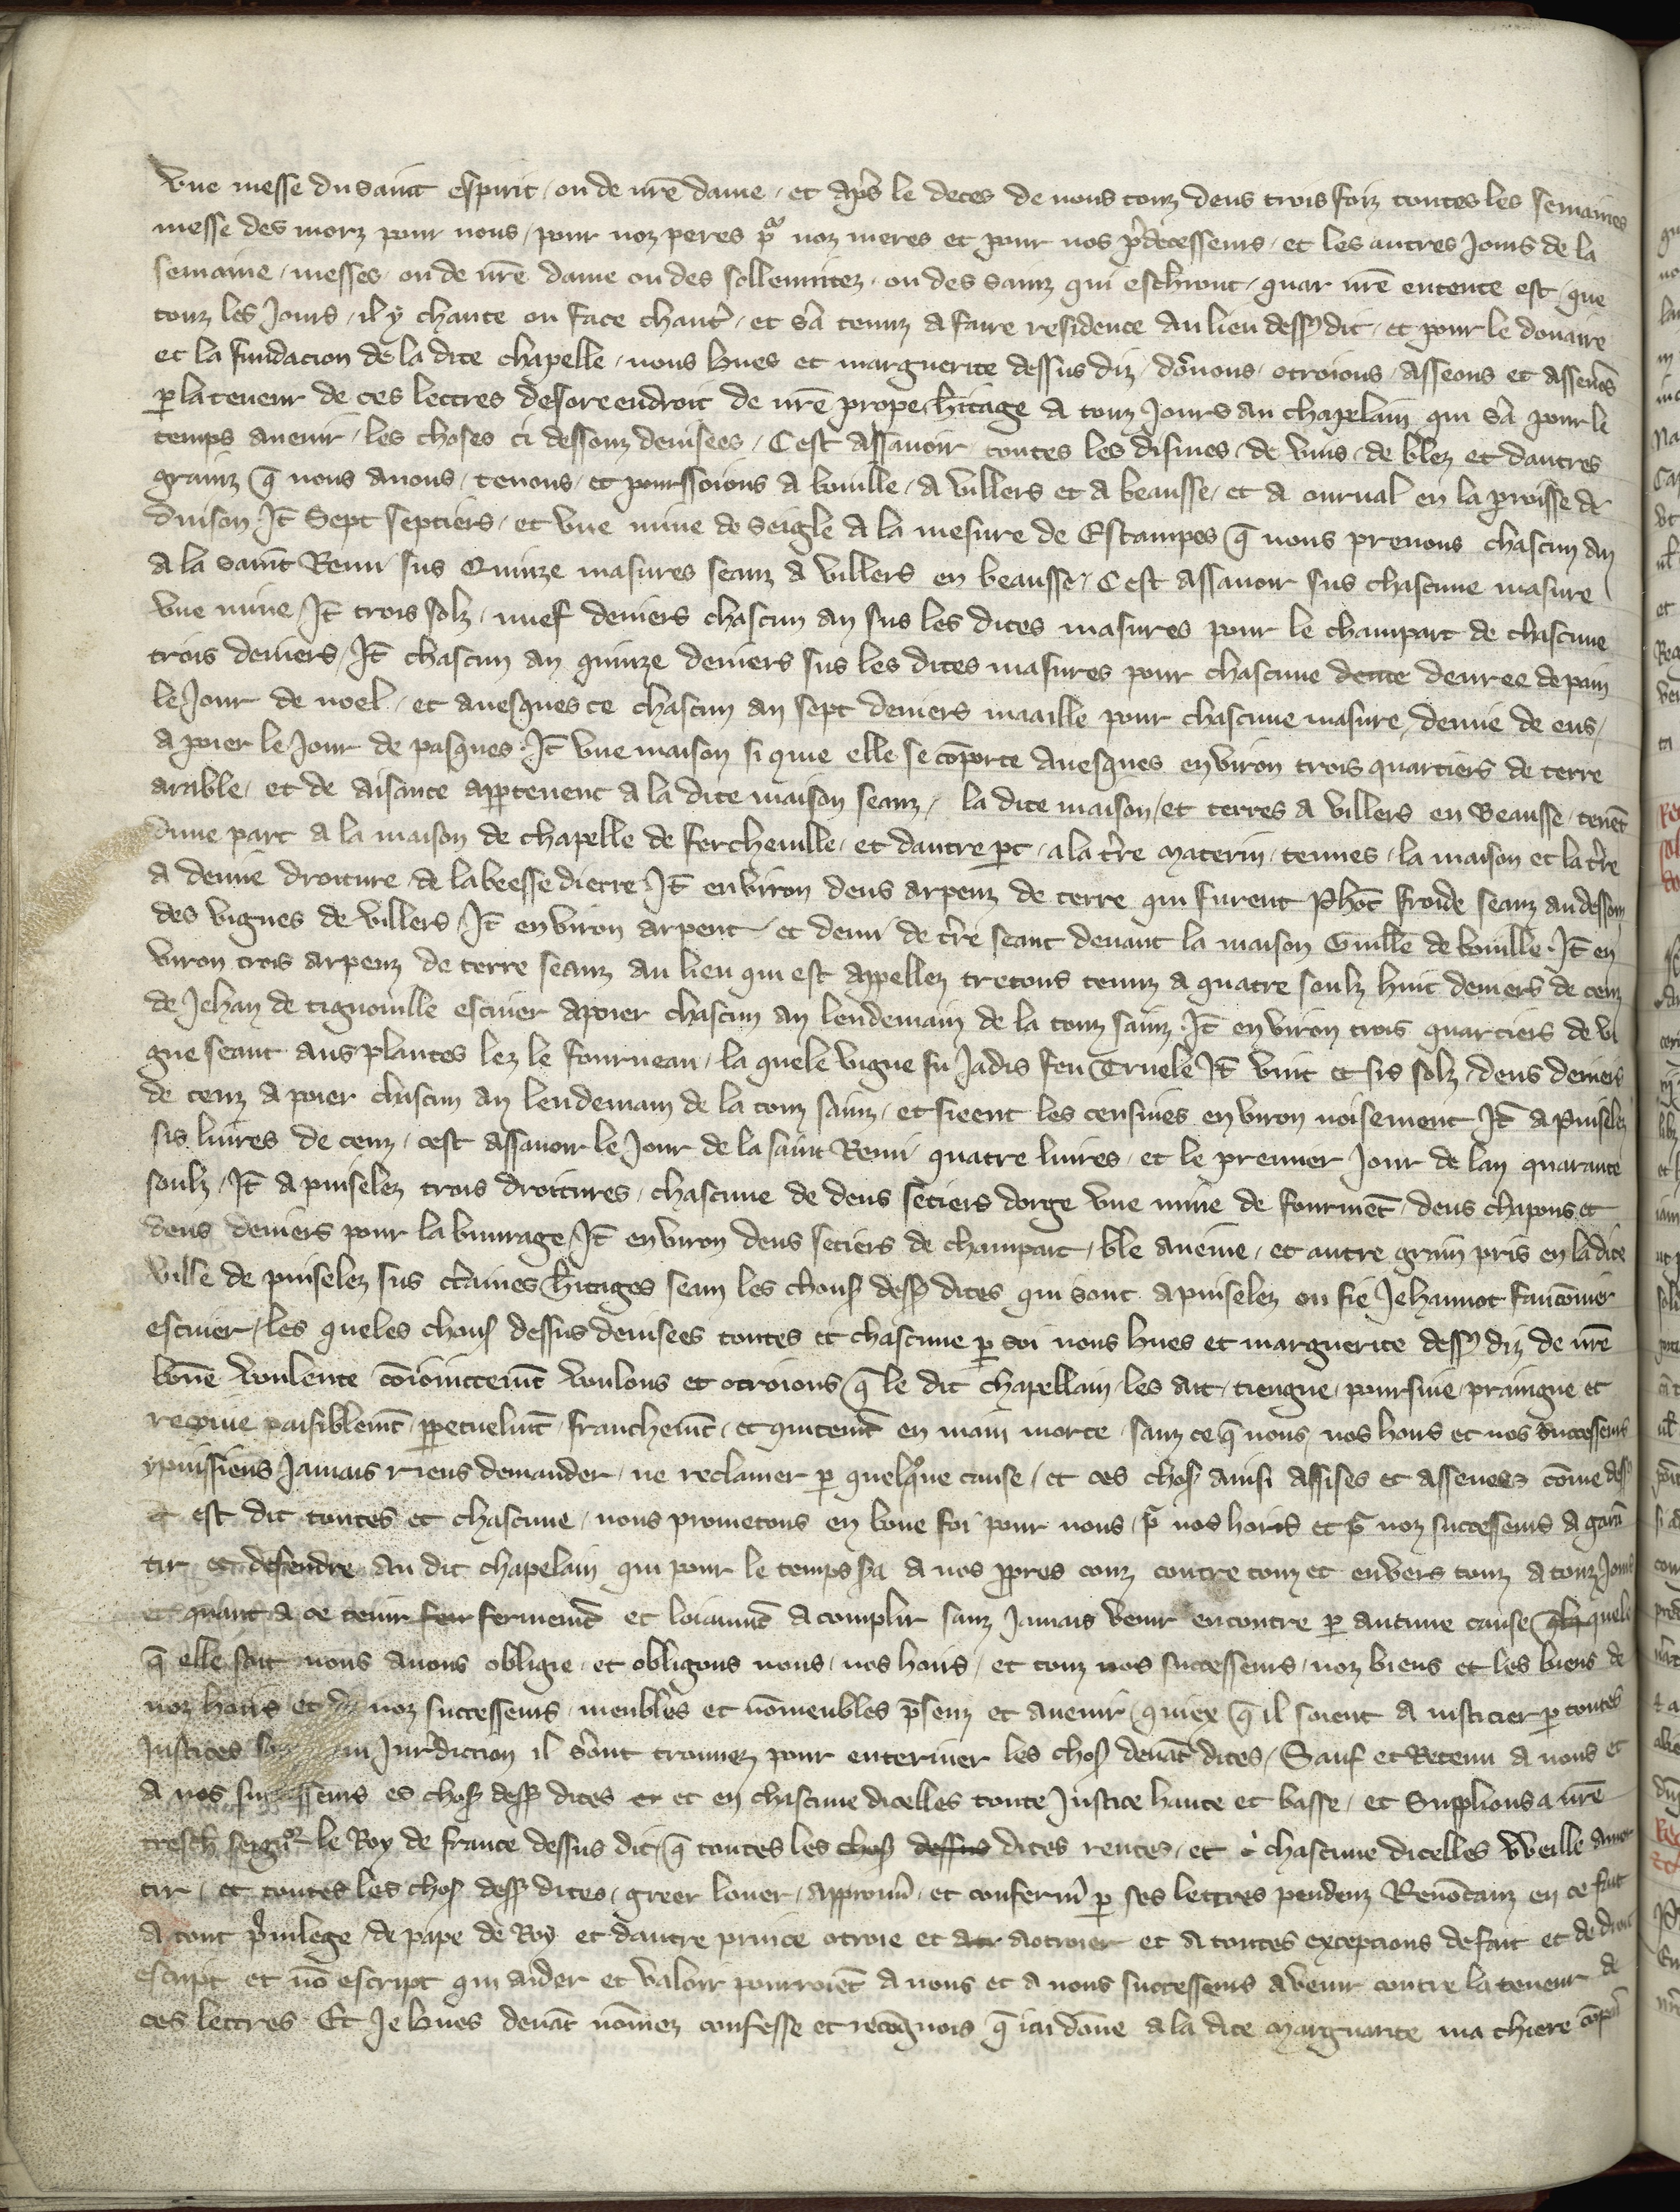 Une messe du saint espirit / ou de nr̃e dame / et apr̃s le deces de nous touz deus trois foiz toutes les semaines
messe des morz pour nous / pour noz peres pᵃ noz meres et pour nos p̃decesseurs / et les autres jours de la
semaine / messes / ou de nr̃e dame ou des sollennitez / ou des sainz qui escherront / quar nr̃e entente est / que
touz les jours / il y chante ou face chant̃ / et s̃a tenuz a faire residence au lieu dess9 dit / et pour le douaire
et la fundacion de la dite chapelle / nous hues et marguerite dessus diz / dõnons / otroions / asseons et assenõs
ꝑ la teneur de ces lettres desorendroit de nr̃e propre h̃itage a touz jours au chapelain qui s̃a pour le
temps avenir / les choses ci dessouz devisees / C est assavoir toutes les dismes / de vins / de blez et dautres
grainz q̃ nous avons / tenons / et pourssoions a bouille / a villers et a beausse / et a ourual en la ꝑroisse de
duison / It̃ Sept septiers / et une mine de seigle a la mesure de Estampes q̃ nous prenons chascun an
a la saint Remi sus Quinze masures seanz a villers en beausse / C est assavoir sus chascune masure
une mine / It̃ trois solz / nuef deniers chascun an sus les dites masures pour le champart de chascune
trois deniers / It̃ chascun an quinze deniers sus les dites masures pour chascune dente denree de pain
le jour de noel / et avesques ce chascun an sept deniers maaille pour chascune masure / demie de eus /
a poier le jour de pasques / It̃ une maison si que elle se cõporte avesques environ trois quartiers de terre
arable / et de aisance apꝑtenent a la dite maison seanz / la dite maison / et terres a villers en Beausse / tenẽt
dune part a la maison de chapelle de fercheville / et dautre ꝑt / a la t̃re materin / tenues / la maison et la t̃re
a demie droiture / de labeesse dierre It̃ environ deus arpenz de terre qui furent Ph̃ot froide seanz au dessouz
des vignes de villers / It̃ environ arpent / et demi de t̃re seant devant la maison Guill̃e de bouille / It̃ en
viron trois arpenz de terre seanz au lieu qui est appellez tretous tenuz a quatre soulz huit deniers de cenz
de Jehan de tignonville escuier a poier chascun an lendemain de la touz sainz / It̃ environ trois quartiers de vi
gne seant aus plantes lez le fourneau / la quele vigne fu jadis feu Truele It̃ vint et sis solz / deus deniers
de cenz a poier chascun an lendemain de la touz sainz / et sieent les censives environ noisement It̃ a puiselez
sis livres de cenz / cest assavoir le jour de la saint Remi quatre livres / et le premier jour de lan quarante
soulz / It̃ a puiselez trois droitures / chascune de deus setiers dorge une mine de fourmẽt / deus chapons et
deus deniers pour labuvrage / It̃ environ deus setiers de champart / ble aveine / et autre grain pris en la dite
ville de puiselez sus c̃taines h̃itages seanz les chouses dess9 dites qui sont a puiselez ou fie Jehannot fauconnier
escuier / les queles chouses dessus devisees toutes et chascune ꝑ soi nous hues et marguerite dess9 diz de nr̃e
bõne voulente cõioinctemẽt voulons et otroions q̃ le dit chapellain / les ait / tiengne / poursuie / praingne et
recoive paisiblemẽt / ꝑpetuelmẽt / franchemẽt / et quitemẽt en main morte / sanz ce q̃ nous / nos hoirs et nos successeurs
y puissiens jamais riens demander / ne reclamer ꝑ quelq̃ue cause / et ces choses ainsi assises et assenees cõme dess9
est dit toutes et chascune / nous prometons en bone foi pour nous / pᵃ nos hoirs et pᵃ noz successeurs a garã
tir et defendre au dit chapelain qui pour le temps s̃a a nos ꝓpres couz contre touz et envers touz a touz jours
et quant a ce tenir fer fermemẽt et loiaumẽt acomplir sanz jamais venir encontre ꝑ aucune cause quele
q̃ elle soit nous avons obligie / et obligons nous / nos hoirs / et touz nos successeurs / noz biens et les biens de
noz hoirs et de noz successeurs / meubles et nõmeubles p̃senz et avenir / quiex q̃ il soient a justicier ꝑ toutes
justices jurdiction il s̃ont trouvez pour enteriner les choses devãt dites / Sauf et Retenu a nous et
a nos successeurs es choses dess9 dites er et en chascune dicelles toute justice haute et basse / et Supplions a nr̃e
tresch̃ seign̄oʳ le Roy de france dessus dit / q̃ toutes les choses dessus dites rentes / et chascune dicelles Weille amor
tir / et toutes les choses dess9 dites / greer louer / approuṽ / et conferm̃ ꝑ ses lettres pendenz Renõcanz en ce fait
a tout p̃vilege / de pape de Roy et dautre prince otroie et a otroier et a toutes exceptions de fait et de droit
escript et nõ escript qui aider et valoir pourroiẽt a nous et a nous successeurs a venir contre la teneur de
ces lettres Et Je hues devãt nõmez confesse et recõgnois q̃ iai dõne a la dite marguarite ma chiere cõpai